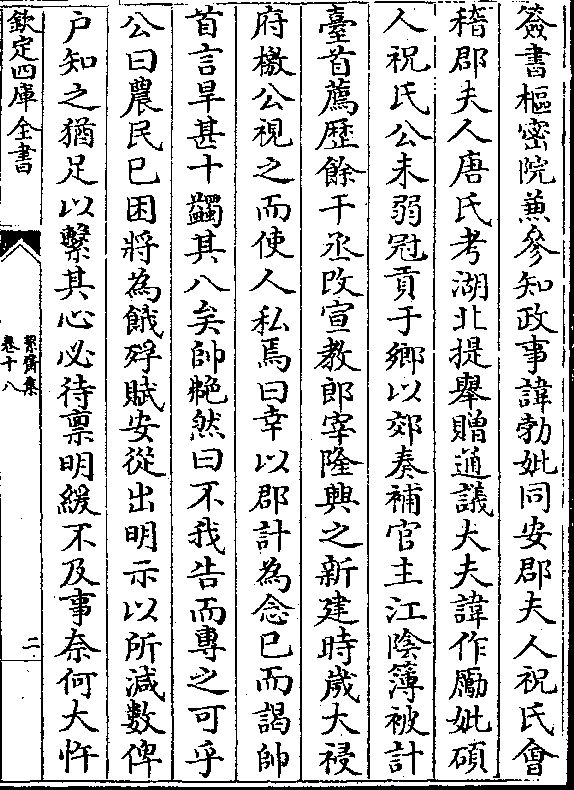 簽書樞密院兼參知政事諱勃妣同安郡夫人祝氏會
稽郡夫人唐氏考湖北提舉贈通議大夫諱作勵妣碩
人祝氏公未弱冠貢于鄉以郊奏補官主江陰簿被計
臺首薦歷餘干丞改宣教郎宰隆興之新建時歲大祲
府檄公視之而使人私焉曰幸以郡計為念已而謁帥
首言旱甚十蠲其八矣帥艴然曰不我告而專之可乎
公曰農民已困將為餓殍賦安從出明示以所減數俾
户知之猶足以繫其心必待禀明緩不及事奈何大忤
欽定四庫全書
絜齋集
卷十八
二